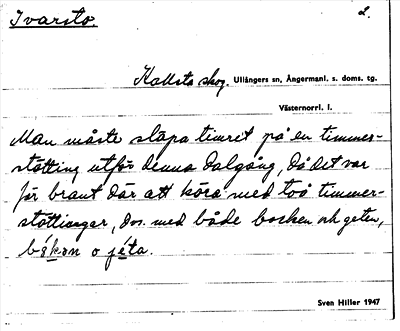 Ivarsto. 2.
Kallsta skog. Ullångers sn, Ångermanl. s. doms. tg.
Västernorrl. l.
Man måste släpa timret på en timmer-
stötting utför denna dalgång, då det var
för brant där att köra med två timmer-
stöttingar, dvs. med både bocken och geten,
båkan o jéta.
Sven Hiller 1947